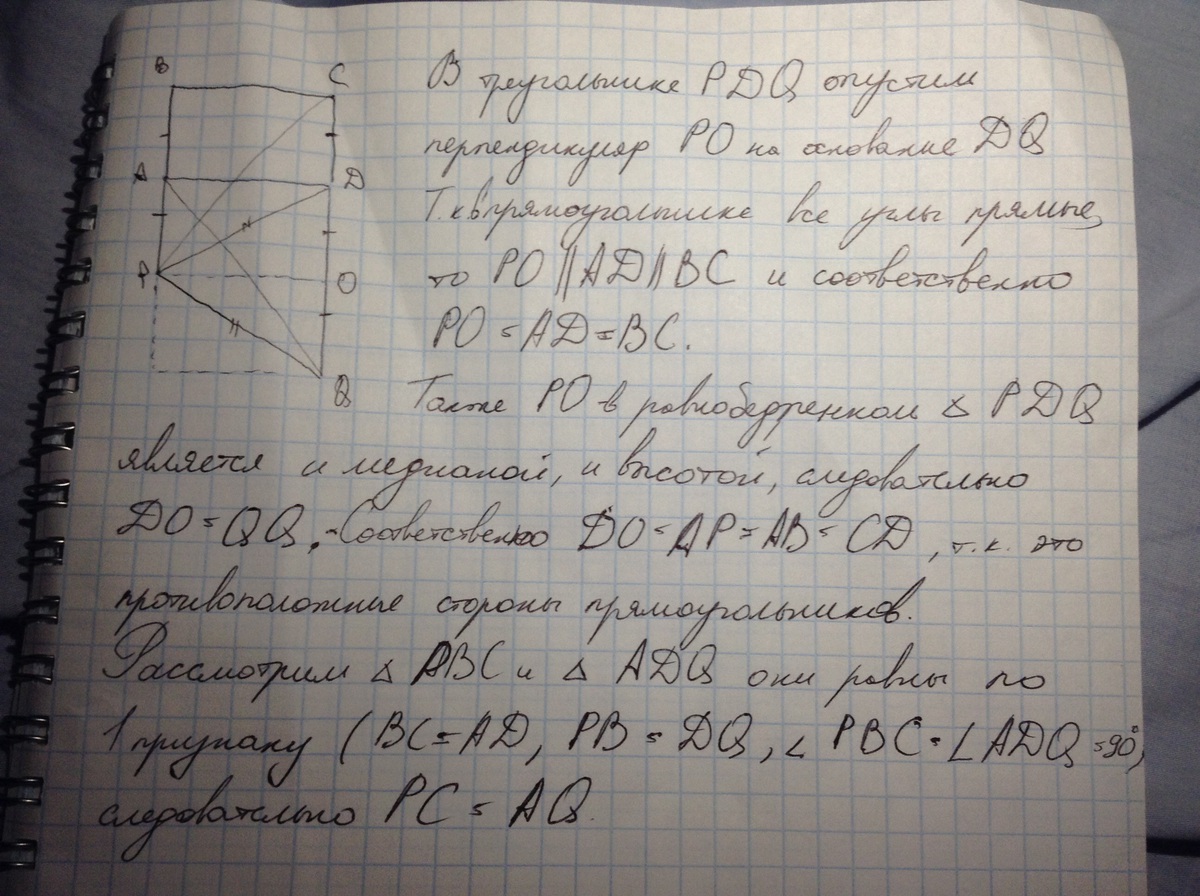 B
C
A
D
P
O
Q
В треугольнике PDQ опустим
перпендикуляр PO на основание DQ
Т.к в прямоугольнике все углы прямые,
то PO || AD || BC и соответственно
PO = AD = BC.
Также PO в равнобедренном △ PDQ
является и медианой, и высотой, следовательно
DO = QQ, Соответственно DO = AP = AB = CD, т.к. это
противоположные стороны прямоугольников.
Рассмотрим △ PBC и △ ADQ они равны по
1 признаку (BC = AD, PB = DQ, ∠ PBC = ∠ ADQ = 90°,
следовательно PC = AQ.